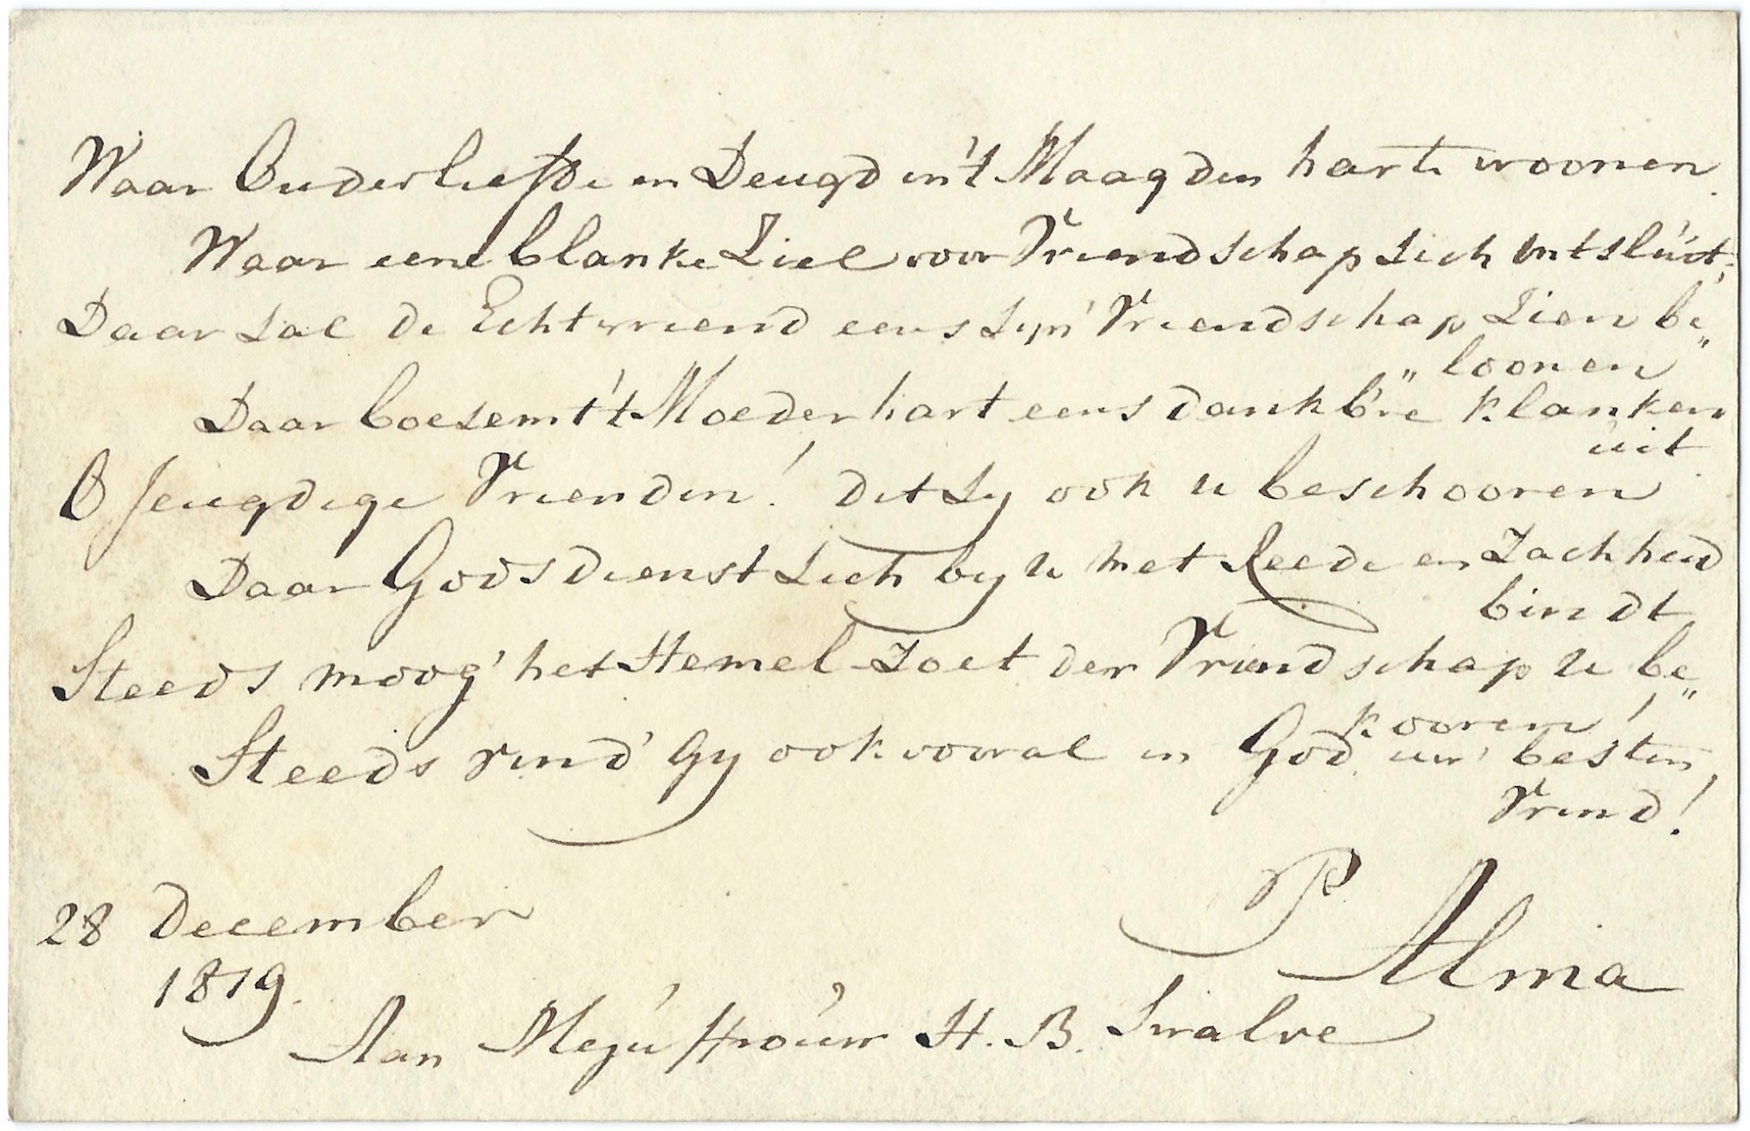 Waar Ouderliefde en Deugd in 't Maagden harte woonen
Waar eene blanke Ziel voor Vriendschap zich ontsluit,
Daar zal de Echtvriend eens zyn' Vriendschap zien be„
„loonen
Daar boezemt 't Moederhart eens dankb're klanken
uit
O Jeugdige Vriendin! dit zy ook u beschooren
Daar Godsdienst zich by u met Reede en Zachheid
bindt
Steeds moog' het Hemel-Zoet der Vriendschap u be„
kooren!
Steeds vind' Gy ook vooral in God uw' besten
Vrind!
P. Alma
28 December
1819.
Aan Mejuffrouw H. B. Swalve